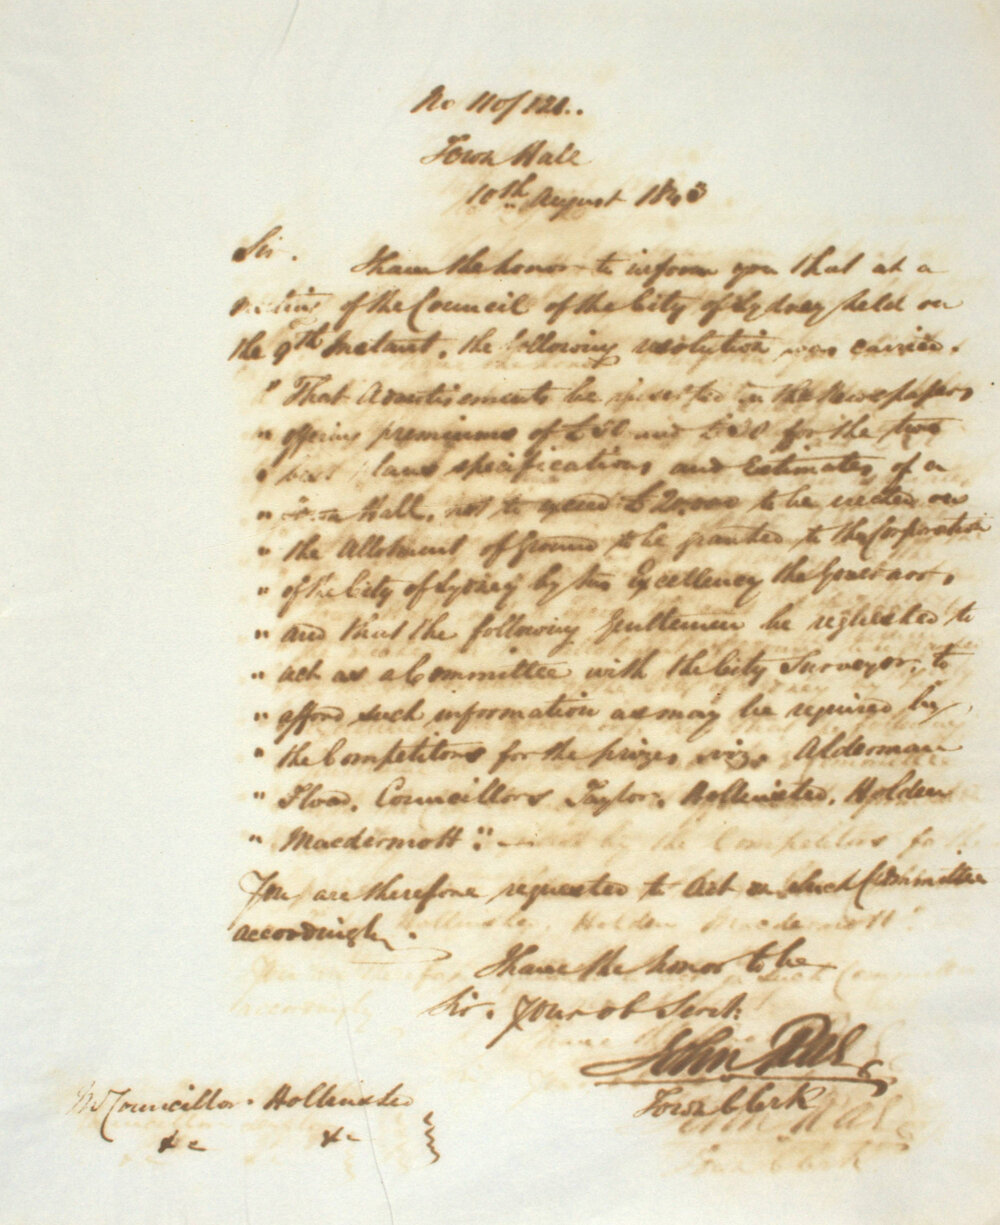 No 110/121..
Town Hall
10th August 1843
Sir.
I have the honor to inform you that at a
meeting of the Council of the City of Sydney held on
the 9th Instant, the following resolution was carried.
" That Advertisements be inserted in the Newspapers
" offering premiums of £50 and £30 for the two
" best plans specifications and Estimates of a
" Town Hall, not to exceed £20,000 to be erected on
" the Allotment of Ground to be granted to the Corporation
" of the City of Sydney by his Excellency the Governor,
" and that the following Gentlemen be requested to
" act as a Committee with the City Surveyor, to
" afford such information as may be required by
" the Competitors for the prizes, viz. Alderman
" Flood, Councillors Taylor, Hollinsted, Holden
" Macdermott".
You are therefore requested to Act on such Committee
accordingly.
I have the honor to be
Sir. Your ob Servt.
John Rae
Town Clerk
Mr Councillor Hollinsted
&c &c